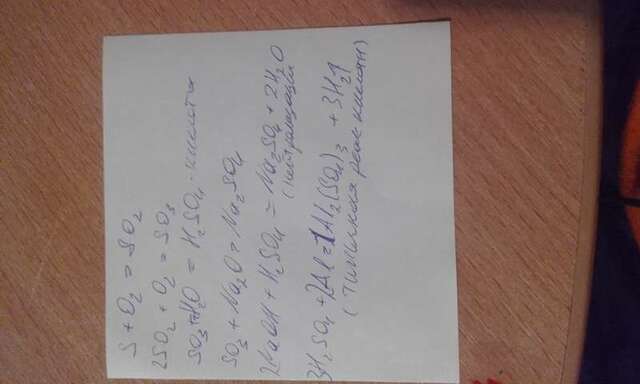 S + O₂ = SO₂
2SO₂ + O₂ = SO₃
SO₃ + H₂O = H₂SO₄ - кислота
SO₃ + Na₂O = Na₂SO₄
2NaOH + H₂SO₄ = Na₂SO₄ + 2H₂O
(нетрализация
3H₂SO₄ + 2Al = 1Al₂(SO₄)₃ + 3H₂↑
(типичная реак кислот)